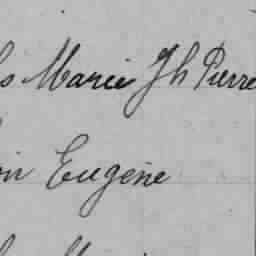 s Marie Jh Pierre
in Eugène